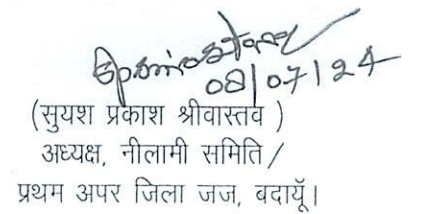 08/07/24
(सुयश प्रकाश श्रीवास्तव )
अध्यक्ष, नीलामी समिति /
प्रथम अपर जिला जज, बदायूॅ।